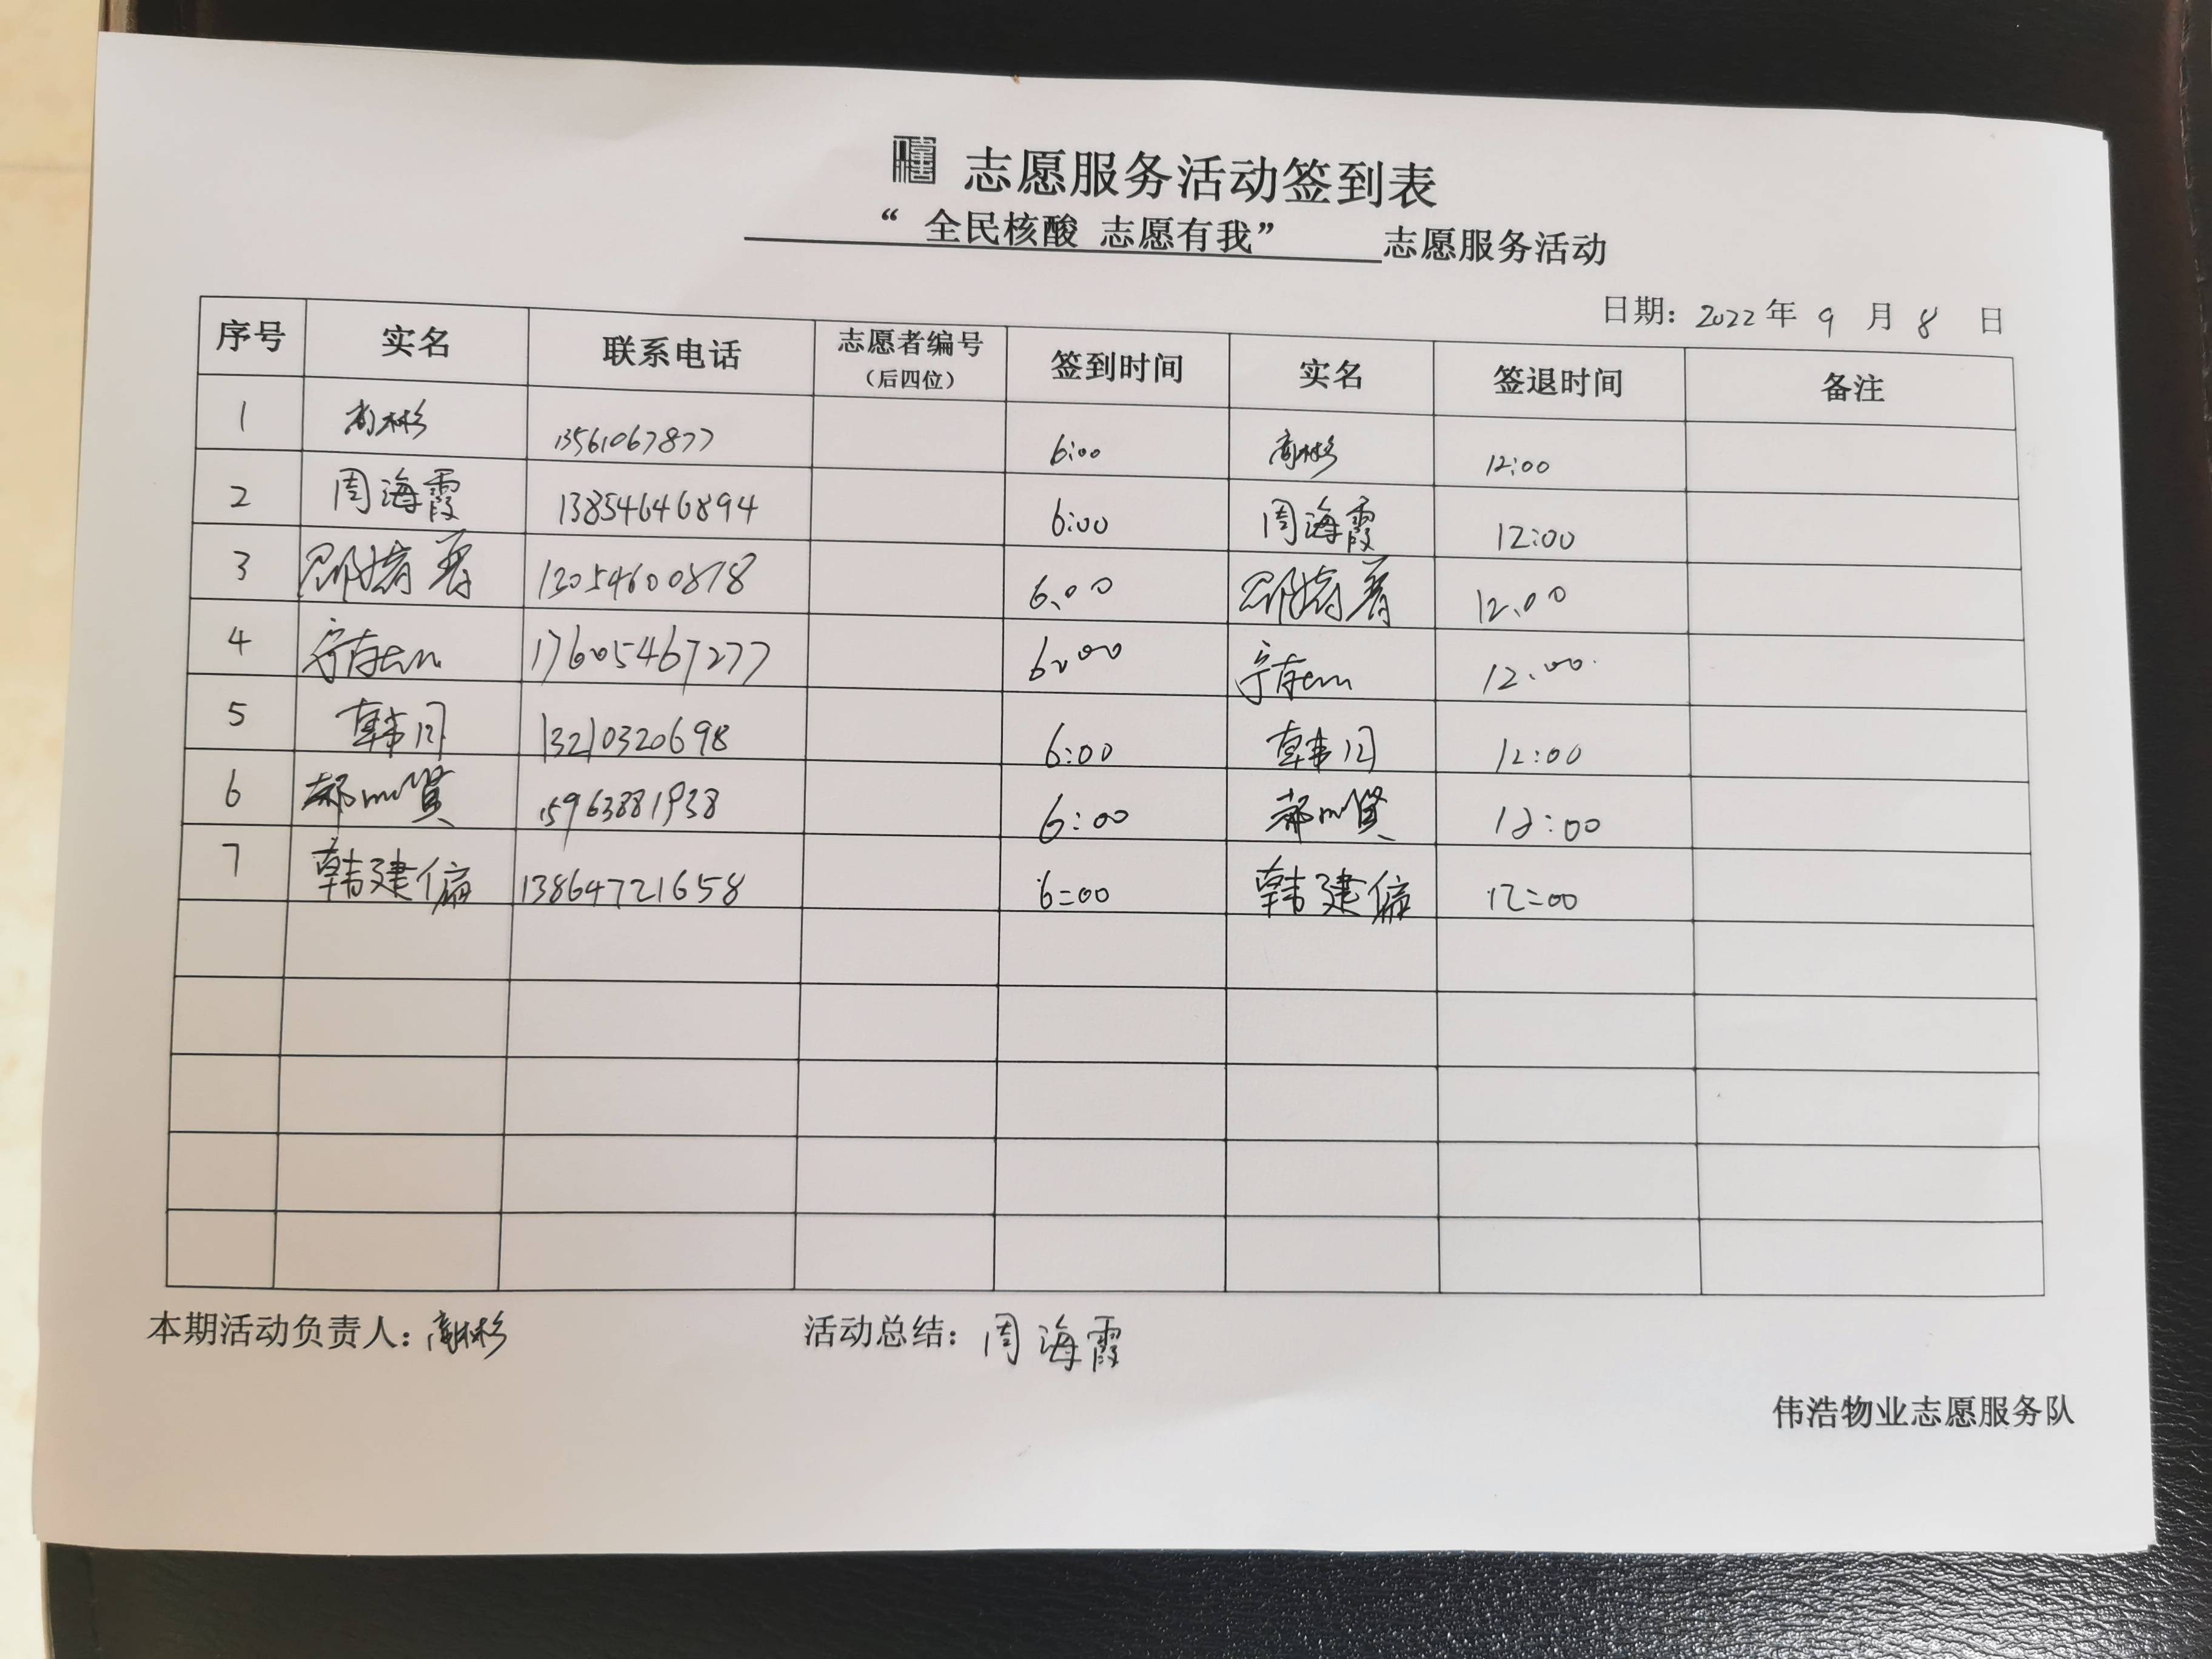 志愿服务活动签到表
“ 全民核酸 志愿有我” 志愿服务活动
日期：2022年 9 月 8 日
序号 实名 联系电话 志愿者编号（后四位） 签到时间 实名 签退时间 备注
1 高彬 13561067877 6:00 高彬 12:00
2 周海霞 13854646894 6:00 周海霞 12:00
3 6.00 12.00
4 17605467277 6:00 12:00
5 韩月 13210320698 6:00 韩月 12:00
6 15963881938 6:00 12:00
7 韩建 13864721658 6:00 韩建 12:00
本期活动负责人：高彬 活动总结：周海霞
伟浩物业志愿服务队